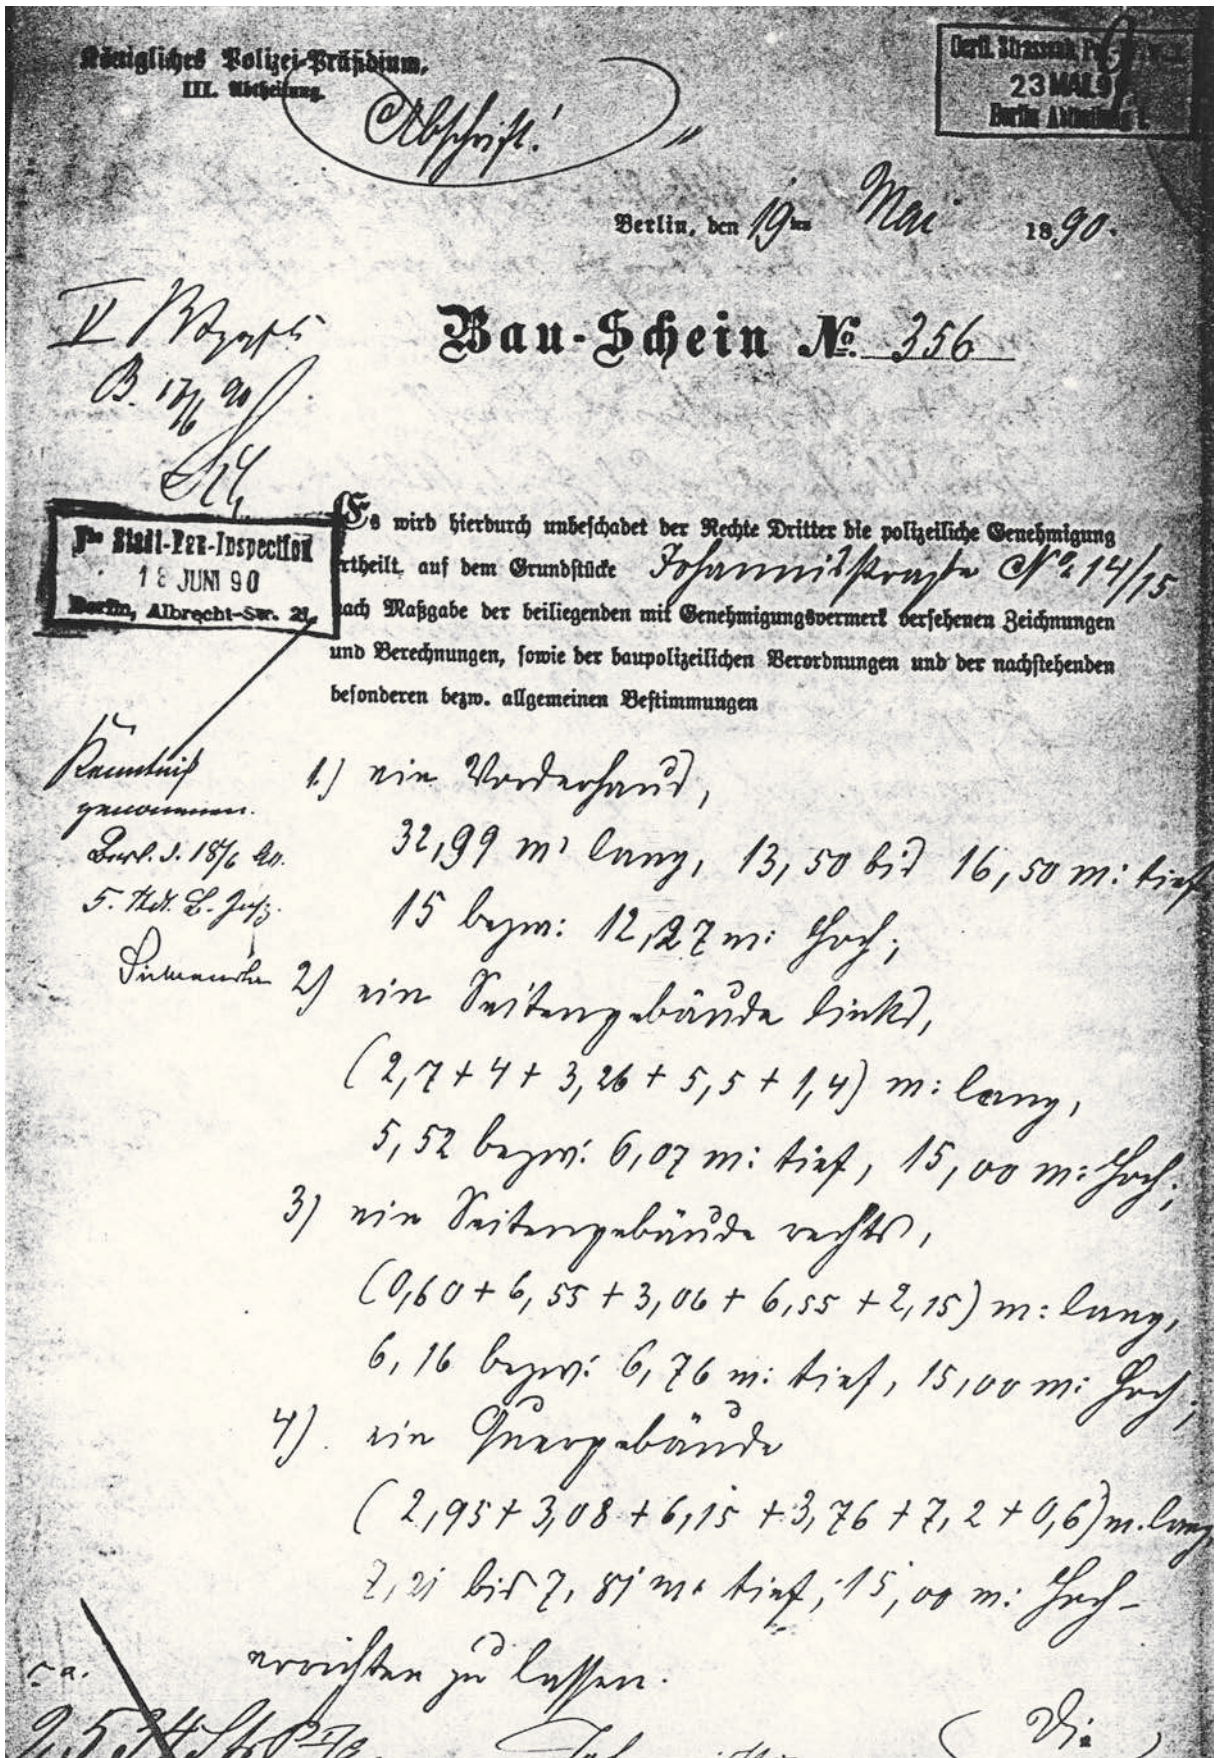 Königliches Polizei-Präsidium.
III. Abtheilung.
Abschrift!
23 MAI 9
Berlin Abtheilung I.
Berlin, den 19ten Mai 1890.
Bau-Schein No. 356
B. 17/6 90
Stadt-Bau-Inspection
18 JUNI 90
Berlin, Albrecht-Str. 21.
Es wird hierdurch unbeschadet der Rechte Dritter die polizeiliche Genehmigung
rtheilt, auf dem Grundstücke Johannisstraße No. 14/15
nach Maßgabe der beiliegenden mit Genehmigungsvermerk versehenen Zeichnungen
und Berechnungen, sowie der baupolizeilichen Verordnungen und der nachstehenden
besonderen bezw. allgemeinen Bestimmungen
Kenntniß
genommen.
Berl. d. 18/6 90.
1.) ein Vorderhaus,
32,99 m: lang, 13,50 bis 16,50 m: tief
15 bezw: 12,27 m: hoch;
2) ein Seitengebäude links,
(2,7 + 4 + 3,26 + 5,5 + 1,4) m: lang,
5,52 bezw: 6,07 m: tief, 15,00 m: hoch;
3) ein Seitengebäude rechts,
(0,60 + 6,55 + 3,06 + 6,55 + 2,15) m: lang,
6,16 bezw: 6,76 m: tief, 15,00 m: hoch;
4) ein Quergebäude
(2,95 + 3,08 + 6,15 + 3,76 + 7,2 + 0,6) m. lang
7,21 bis 7,81 m: tief, 15,00 m: hoch -
errichten zu lassen.
Die